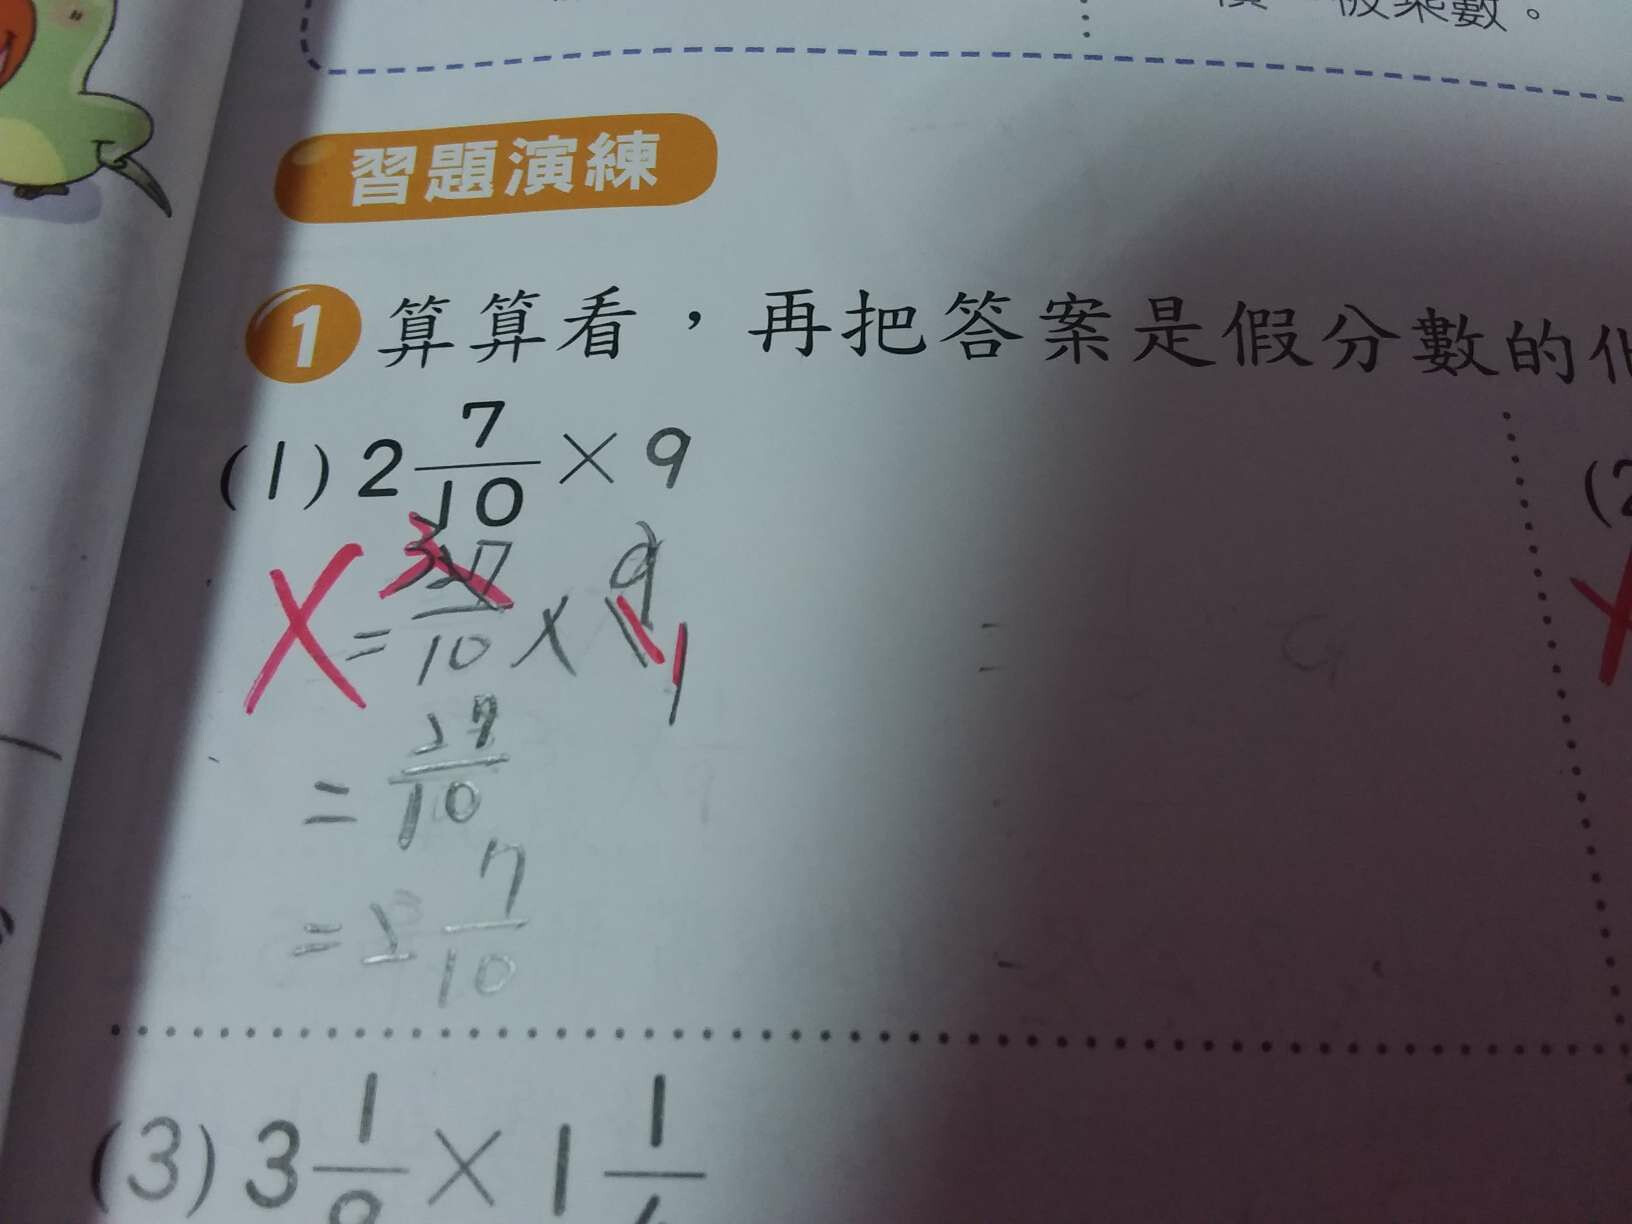 數。
習題演練
1 算算看，再把答案是假分數的
(1) 2 7/10 × 9
= 27/10 × 9
= 27/10
= 2 7/10
(3) 3 1/ × 1 1/